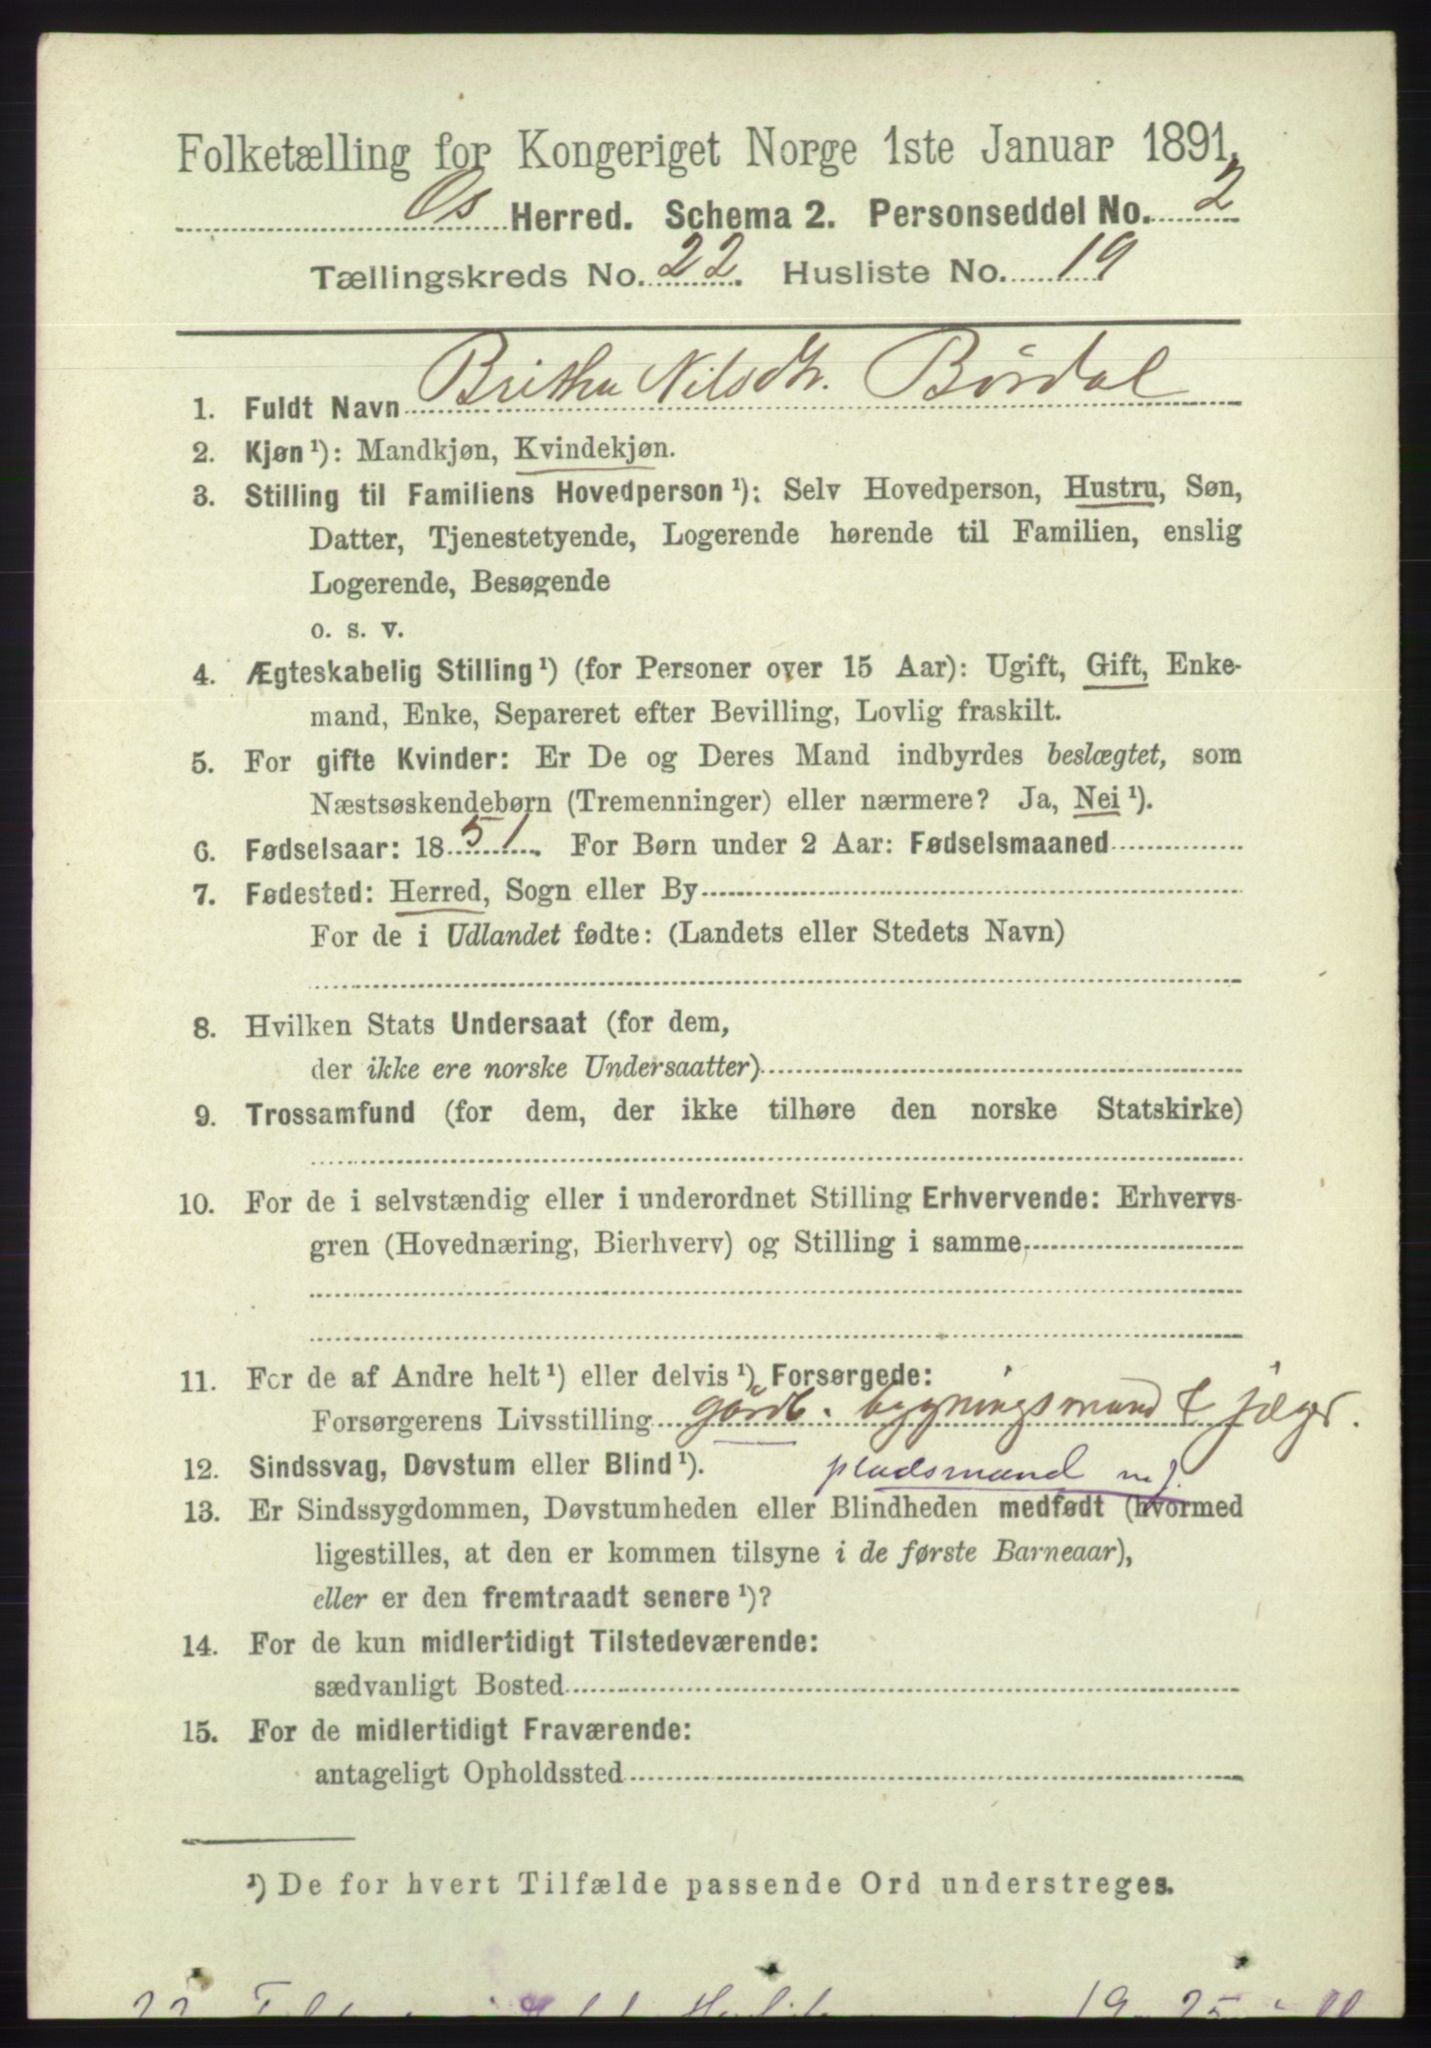 Folketælling for Kongeriget Norge 1ste Januar 1891.
Os Herred. Schema 2. Personseddel No. 2
Tællingskreds No. 22. Husliste No. 19
1. Fuldt Navn Britha Nilsdtr. Børdal
2. Kjøn¹): Mandkjøn, Kvindekjøn.
3. Stilling til Familiens Hovedperson¹): Selv Hovedperson, Hustru, Søn,
Datter, Tjenestetyende, Logerende hørende til Familien, enslig
Logerende, Besøgende
o. s. v.
4. Ægteskabelig Stilling¹) (for Personer over 15 Aar): Ugift, Gift, Enke-
mand, Enke, Separeret efter Bevilling, Lovlig fraskilt.
5. For gifte Kvinder: Er De og Deres Mand indbyrdes beslægtet, som
Næstsøskendebørn (Tremenninger) eller nærmere? Ja, Nei¹).
6. Fødselsaar: 1851. For Børn under 2 Aar: Fødselsmaaned
7. Fødested: Herred, Sogn eller By
For de i Udlandet fødte: (Landets eller Stedets Navn)
8. Hvilken Stats Undersaat (for dem,
der ikke ere norske Undersaatter)
9. Trossamfund (for dem, der ikke tilhøre den norske Statskirke)
10. For de i selvstændig eller i underordnet Stilling Erhvervende: Erhvervs-
gren (Hovednæring, Bierhverv) og Stilling i samme.
11. For de af Andre helt¹) eller delvis¹) Forsørgede:
Forsørgerens Livsstilling gårdb. bygningsmand & jæger.
12. Sindssvag, Døvstum eller Blind¹). pladsmand m j.
13. Er Sindssygdommen, Døvstumheden eller Blindheden medfødt (hvormed
ligestilles, at den er kommen tilsyne i de første Barneaar),
eller er den fremtraadt senere¹)?
14. For de kun midlertidigt Tilstedeværende:
sædvanligt Bosted
15. For de midlertidigt Fraværende:
antageligt Opholdssted
¹) De for hvert Tilfælde passende Ord understreges.